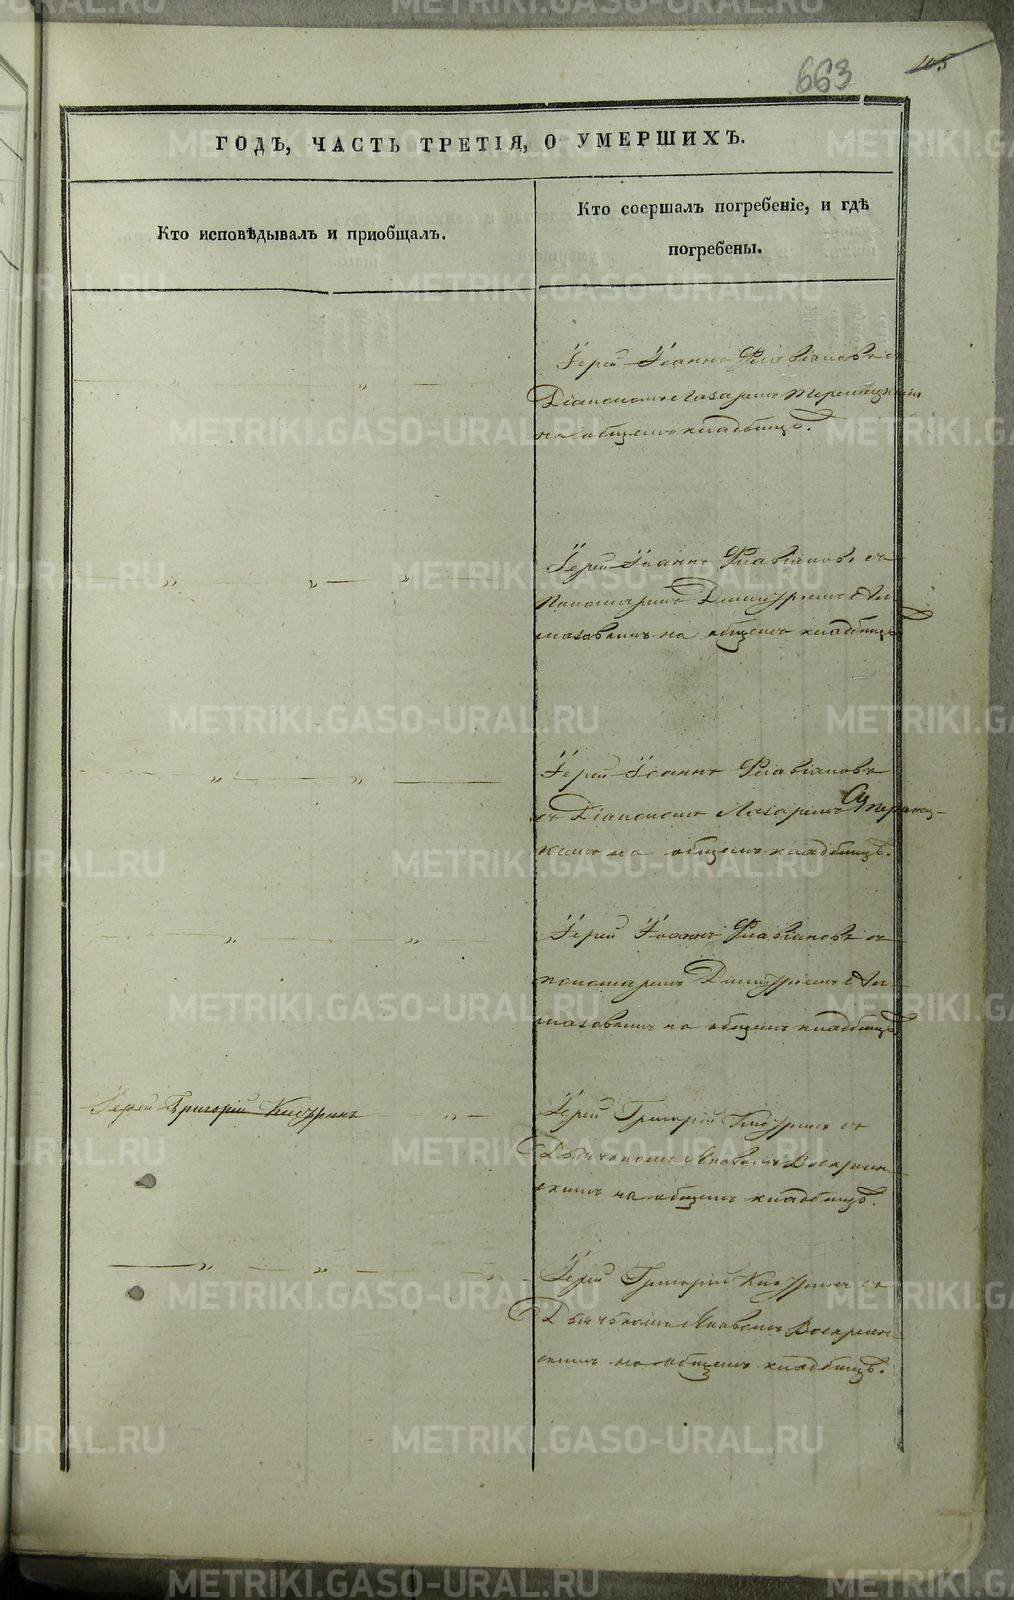 663
105
ГОДЪ, ЧАСТЬ ТРЕТІЯ, О УМЕРШИХЪ.
Кто исповѣдывалъ и приобщалъ.
Кто соершалъ погребеніе, и гдѣ
погребены.
Іерей Іоаннъ Флавіановъ съ
Діакономъ Лазаремъ
на общемъ кладбищѣ.
Іерей Іоаннъ Флавіановъ съ
Пономаремъ Димитріемъ
на общемъ кладбищѣ
Іерей Іоаннъ Флавіановъ
съ Діакономъ Лазаремъ
на общемъ кладбищѣ.
Іерей Іоаннъ Флавіановъ съ
пономаремъ Димитріемъ
на общемъ кладбищѣ
Іерей Григорій
Іерей Григорій съ
Дьячкомъ Яковомъ Воскресен
скимъ на общемъ кладбищѣ.
Іерей Григорій съ
Дьячкомъ Яковомъ Воскресен-
скимъ на общемъ кладбищѣ.
METRIKI.GASO-URAL.RU